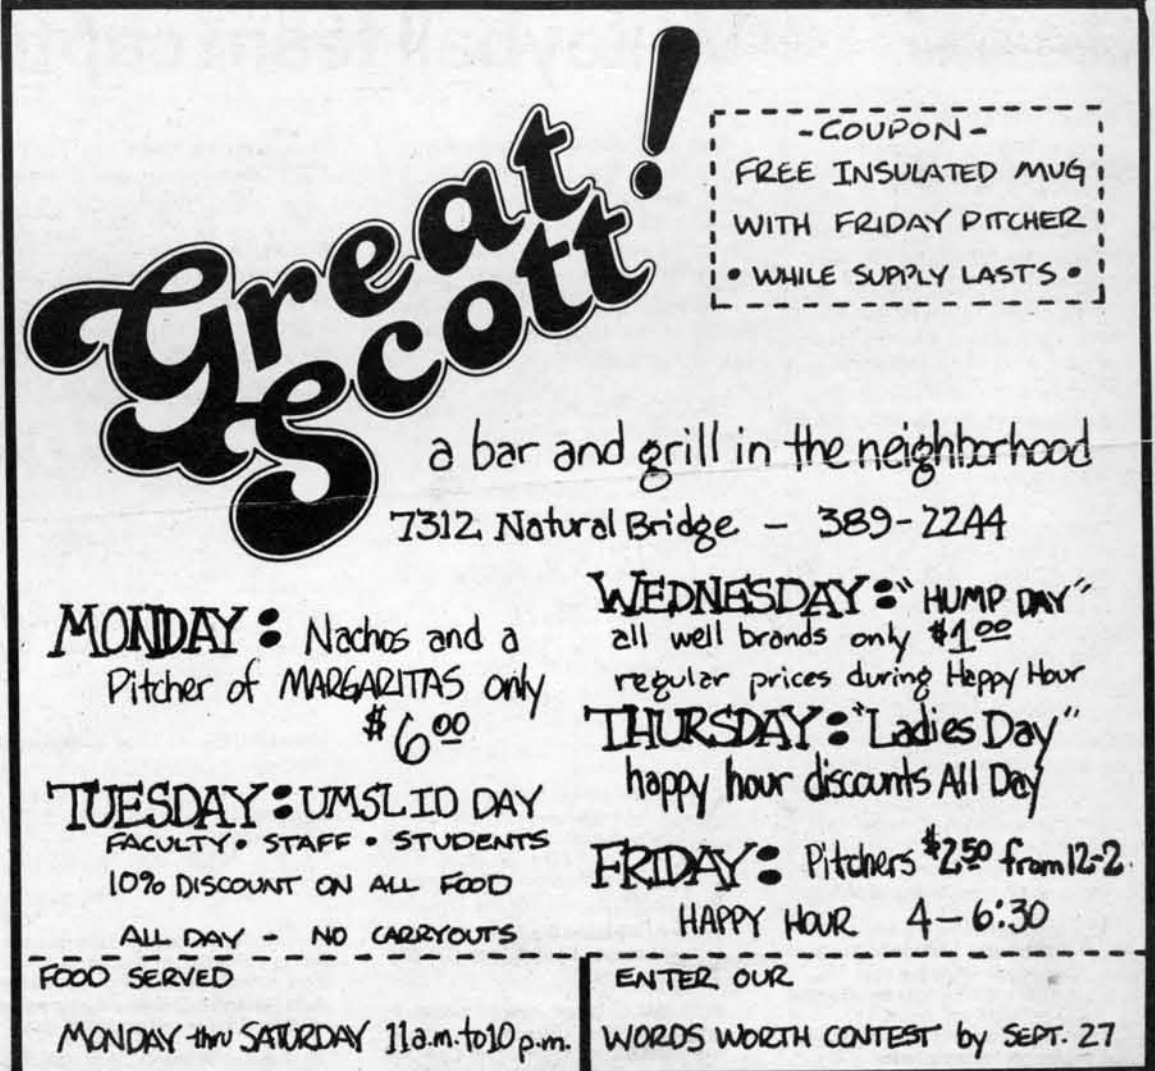 Great Scott!
- COUPON -
FREE INSULATED MUG
WITH FRIDAY PITCHER
• WHILE SUPPLY LASTS •
a bar and grill in the neighborhood
7312 Natural Bridge - 389-2244
MONDAY: Nachos and a
Pitcher of MARGARITAS only
$6.00
TUESDAY: UMSL ID DAY
FACULTY • STAFF • STUDENTS
10% DISCOUNT ON ALL FOOD
ALL DAY - NO CARRYOUTS
WEDNESDAY: "HUMP DAY"
all well brands only $1.00
regular prices during Happy Hour
THURSDAY: "Ladies Day"
happy hour discounts All Day
FRIDAY: Pitchers $2.50 from 12-2.
HAPPY HOUR 4-6:30
FOOD SERVED
MONDAY thru SATURDAY 11a.m. to 10 p.m.
ENTER OUR
WORDS WORTH CONTEST by SEPT. 27